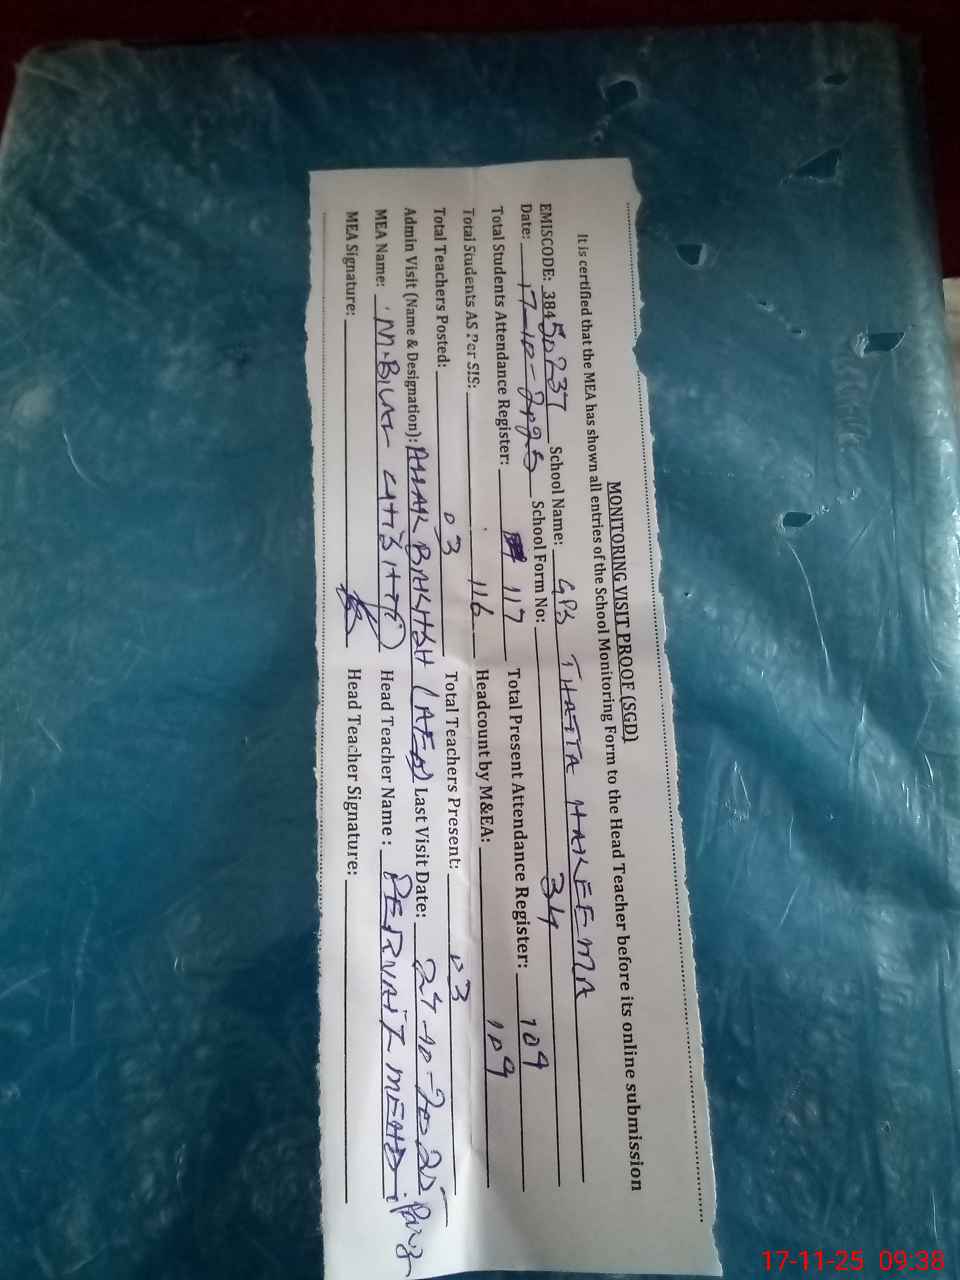 MONITORING VISIT PROOF (SGD)
It is certified that the MEA has shown all entries of the School Monitoring Form to the Head Teacher before its online submission
EMISCODE: 38450237 School Name: GPS THATTA HAKEEMA
Date: 17-10-2025 School Form No: 34
Total Students Attendance Register: 117 Total Present Attendance Register: 109
Total Students AS Per SIS: 116 Headcount by M&EA: 109
Total Teachers Posted: 03 Total Teachers Present: 03
Admin Visit (Name & Designation): ALLAH BAKHSH (AEO) Last Visit Date: 24-10-2025
MEA Name: M. BILAL Head Teacher Name: PERVAIZ MEHDI
MEA Signature: Head Teacher Signature:
17-11-25 09:38